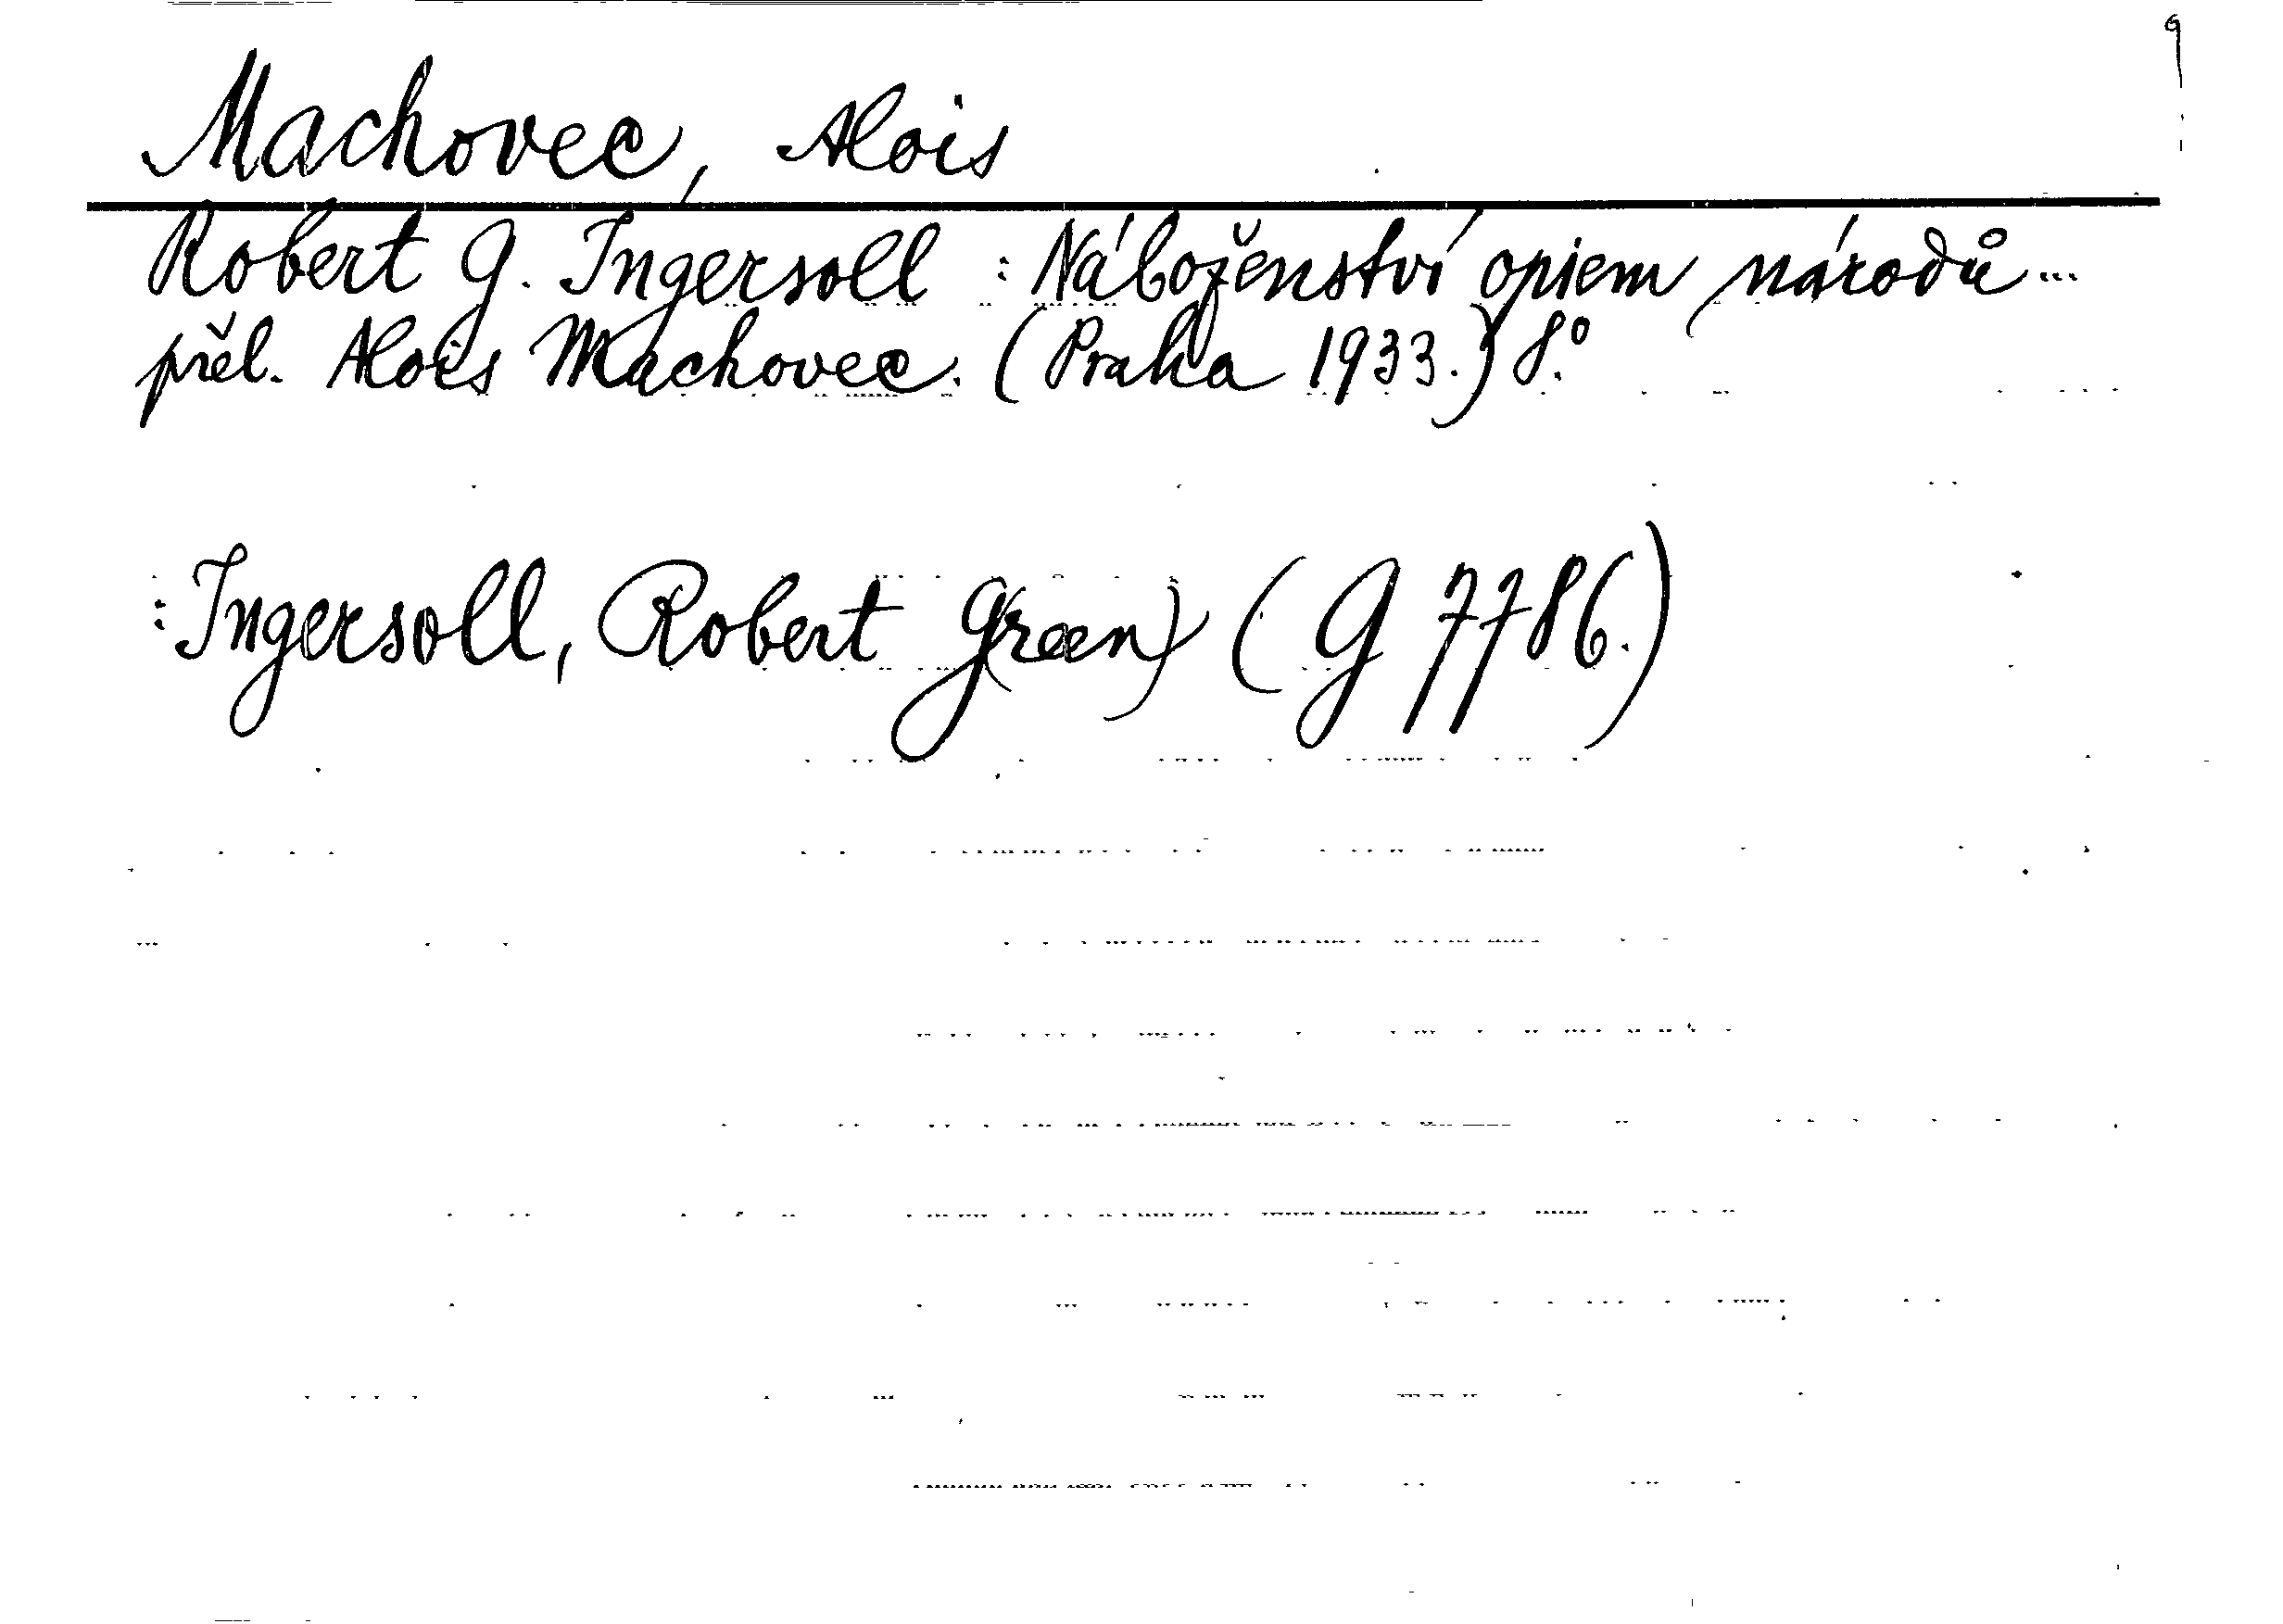 Machovec, Alois
Robert G. Ingersoll : Náboženství opiem národů...
přel. Alois Machovec. (Praha 1933.) 8.°
: Ingersoll, Robert G(reen) (G 7786.)